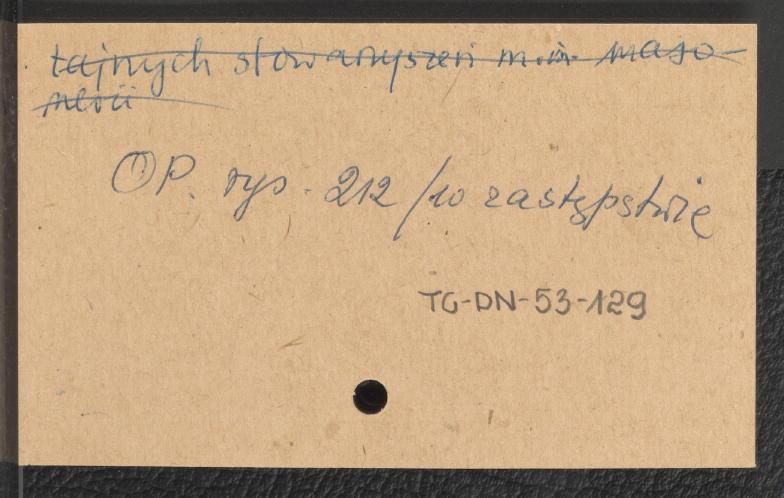 tajnych stowarzyszeń m.in. maso-
nerii
OP. rys. 212 /w zastępstwie
TG-DN-53-129